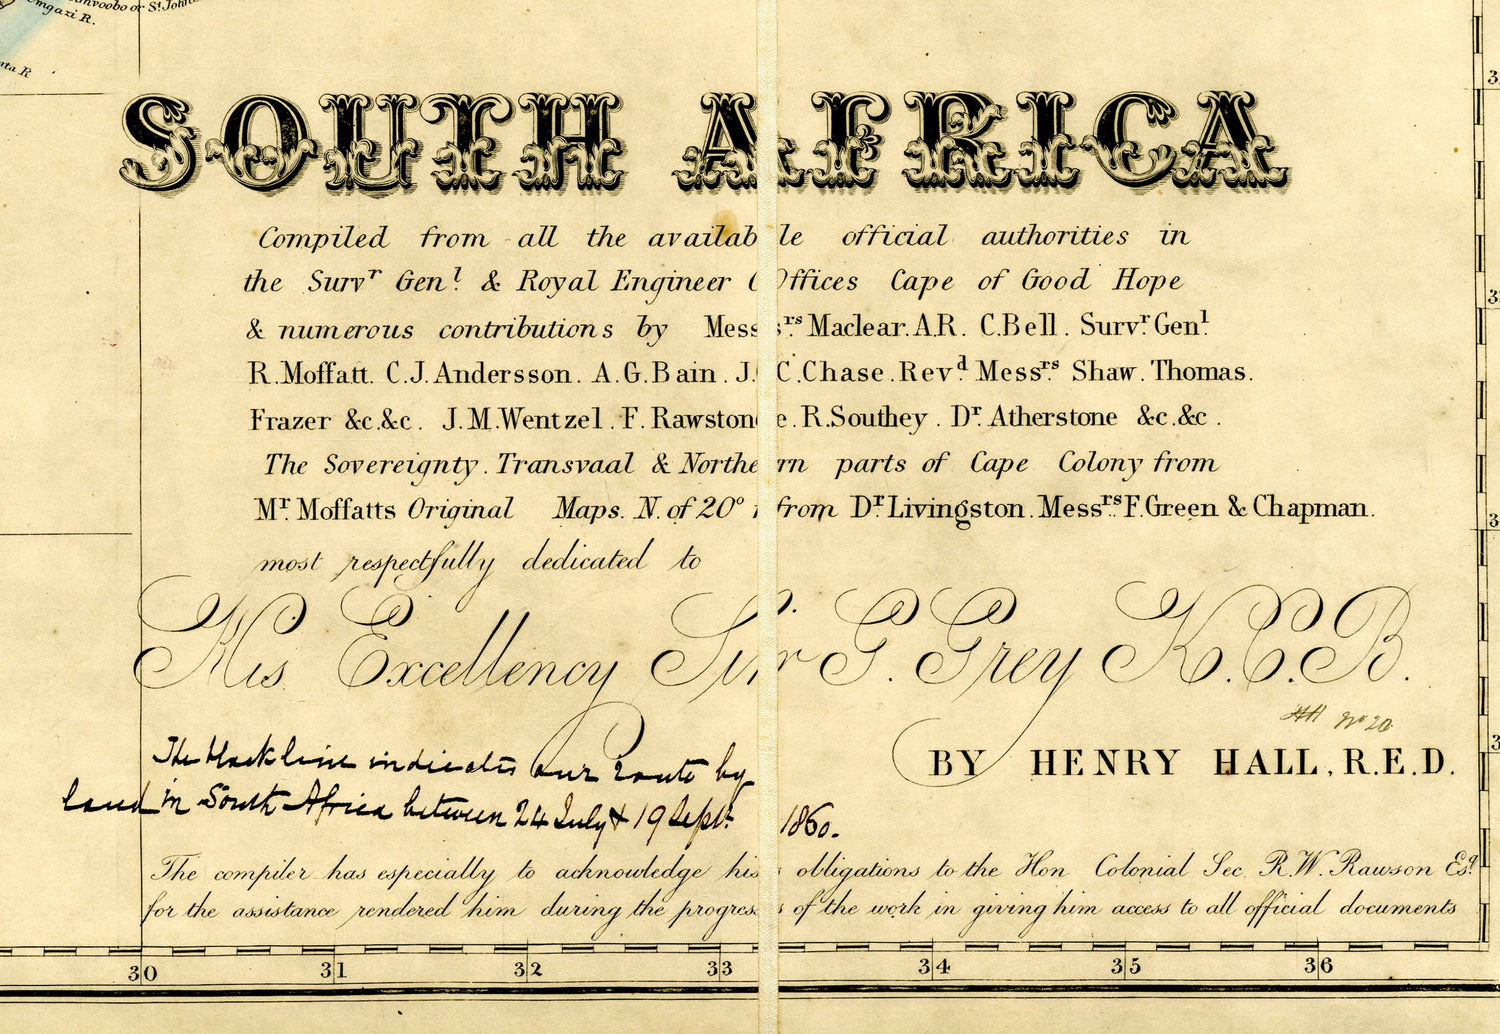 Umgazi R.
SOUTH AFRICA
Compiled from all the available official authorities in
the Survr Genl. & Royal Engineer Offices Cape of Good Hope
& numerous contributions by Messrs. Maclear. A.R. C. Bell. Survr. Genl.
R. Moffatt. C.J. Andersson. A.G. Bain. J.C. Chase. Revd. Messrs. Shaw. Thomas.
Frazer &c. &c. J.M. Wentzel. F. Rawstone. R. Southey. Dr. Atherstone &c. &c.
The Sovereignty. Transvaal & Northern parts of Cape Colony from
Mr. Moffatts Original Maps. N. of 20° from Dr. Livingston. Messrs. F. Green & Chapman.
most respectfully dedicated to
His Excellency Sir G. Grey K.C.B.
No 20
BY HENRY HALL, R.E.D.
The black line indicates our route by
land in South Africa between 24 July & 19 Sept. 1860.
The compiler has especially to acknowledge his obligations to the Hon Colonial Sec R.W. Rawson Esq.
for the assistance rendered him during the progress of the work in giving him access to all official documents
30 31 32 33 34 35 36